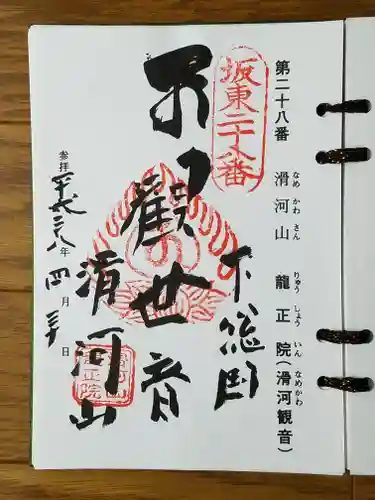 第二十八番 滑河山 龍正院(滑河観音)
なめ かわ さん りゅう しょう いん なめかわ
坂東二十八番
下総国
觀世音
滑河山
参拝 平成二八年 四月 日